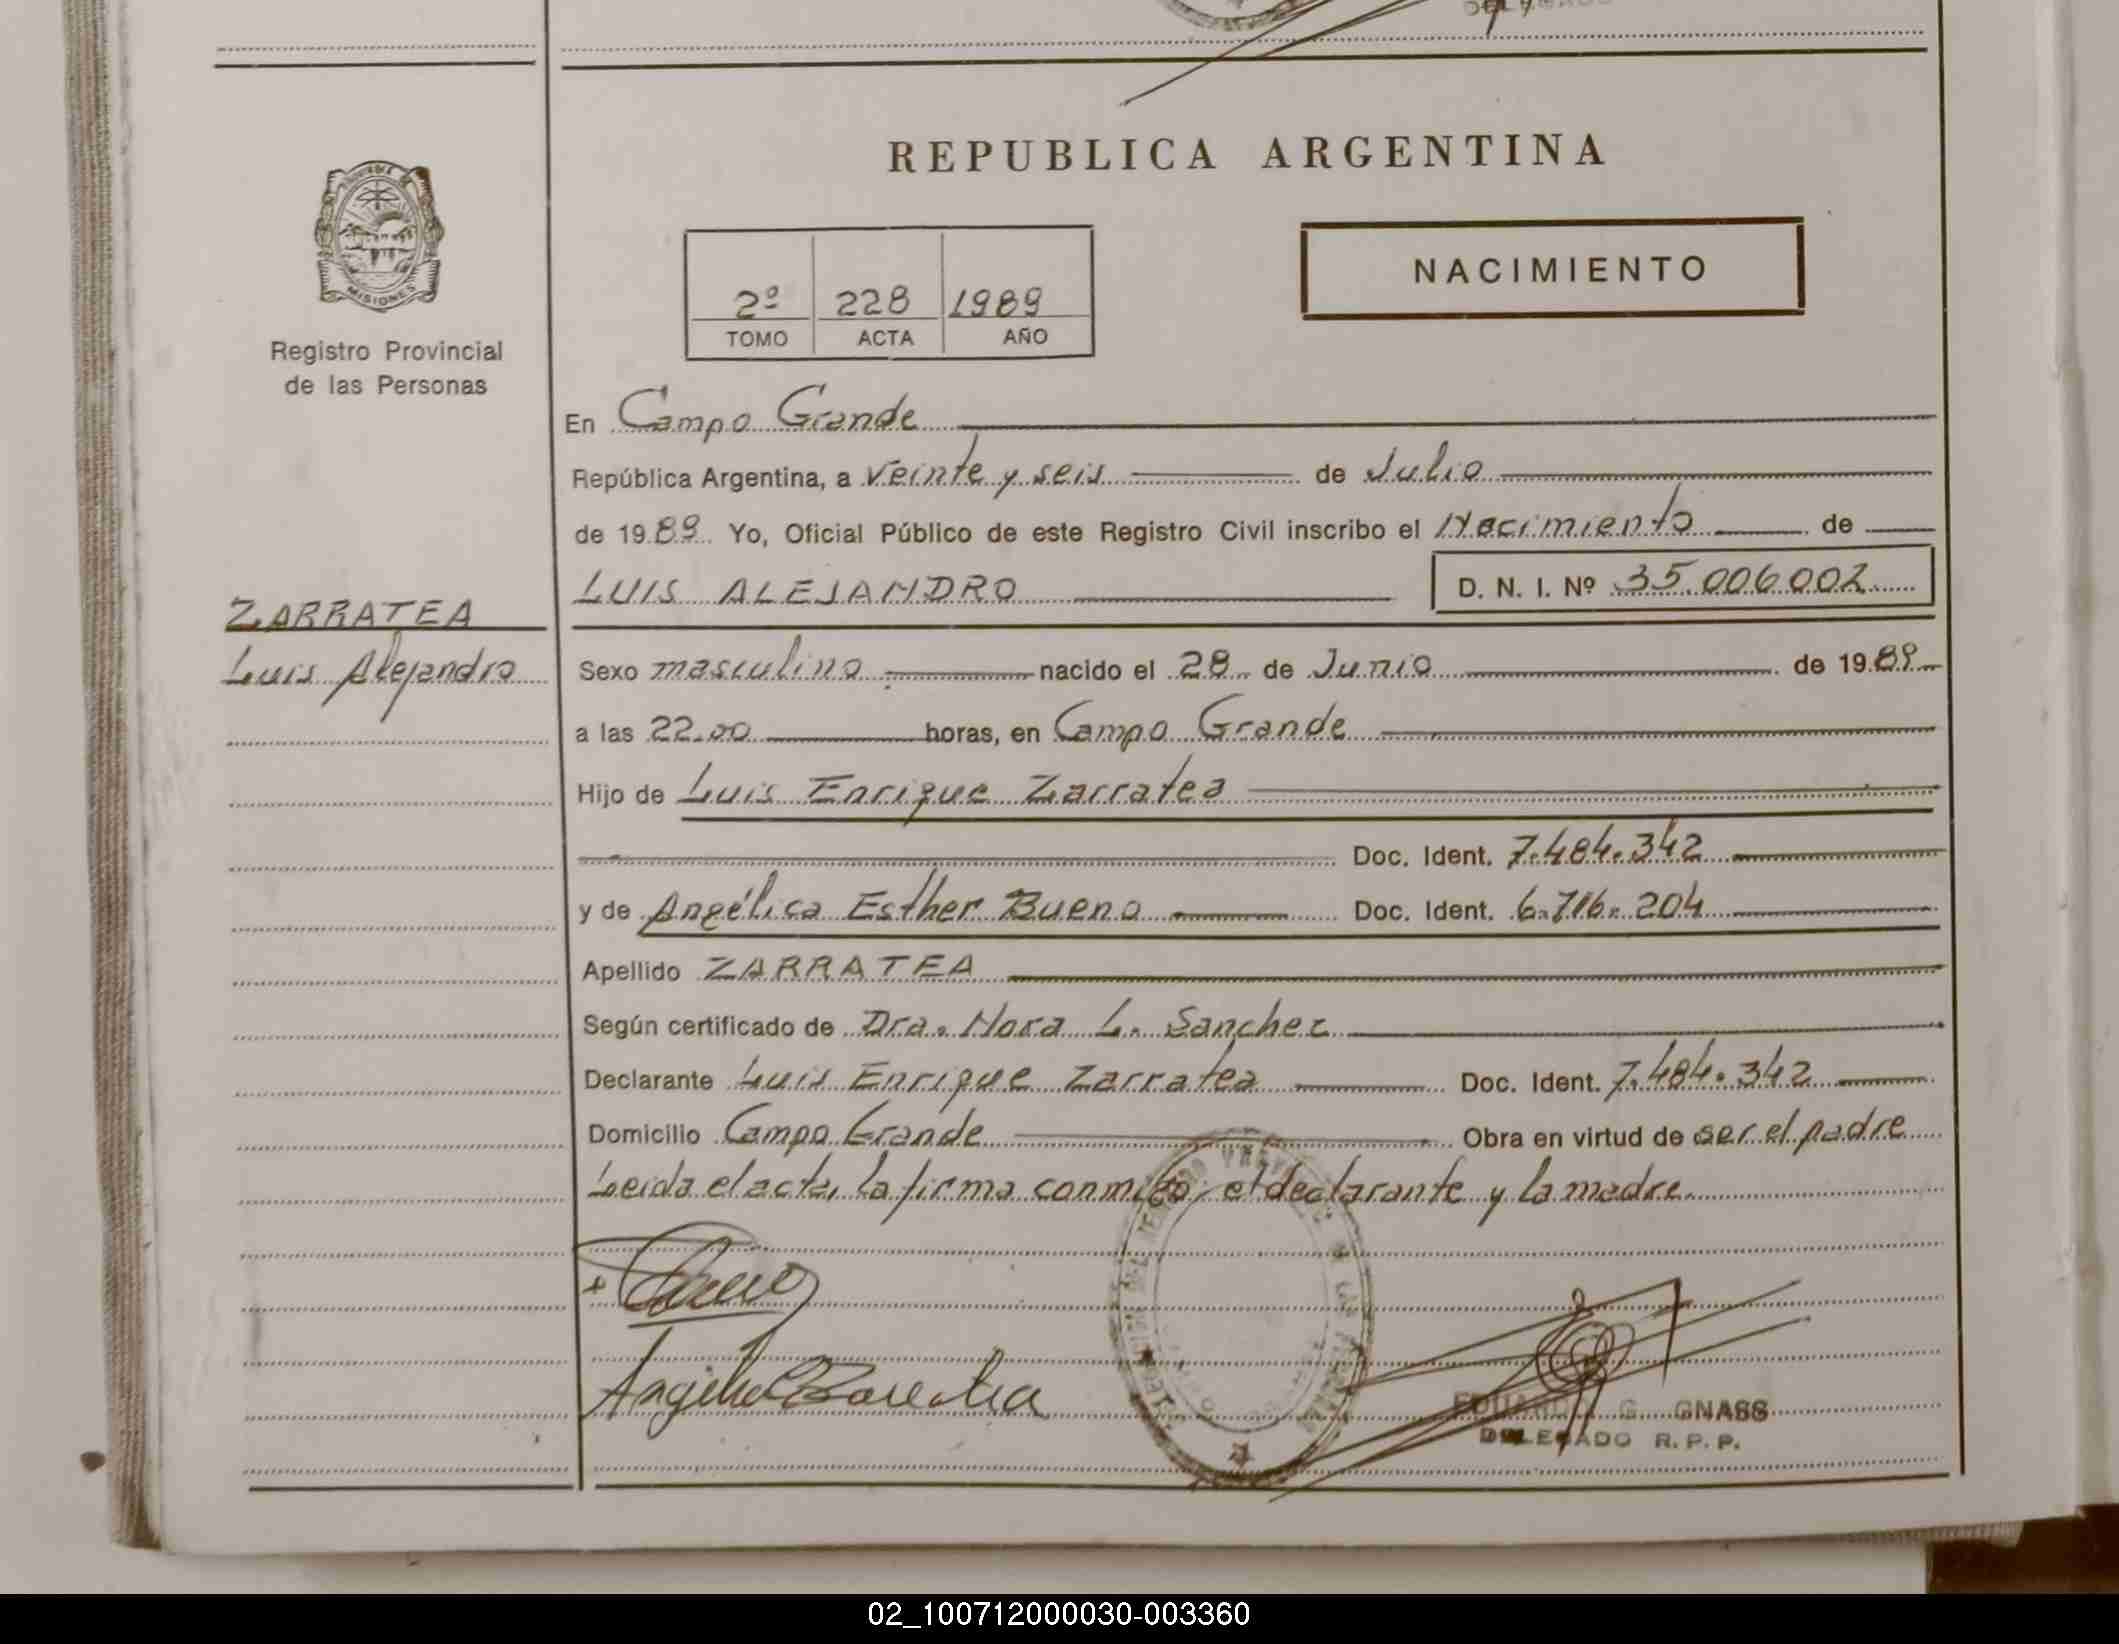 DELEGADO
REPUBLICA ARGENTINA
PROVINCIA DE
MISIONES
Registro Provincial
de las Personas
2º 228 1989
TOMO ACTA AÑO
NACIMIENTO
En Campo Grande
República Argentina, a Veinte y seis de Julio
de 1989 Yo, Oficial Público de este Registro Civil inscribo el Nacimiento de
LUIS ALEJANDRO D. N. I. Nº 35.006.002
ZARRATEA
Luis Alejandro
Sexo masculino nacido el 28 de Junio de 1989
a las 22.00 horas, en Campo Grande
Hijo de Luis Enrique Zarratea
Doc. Ident. 7.484.342
y de Angélica Esther Bueno Doc. Ident. 6.716.204
Apellido ZARRATEA
Según certificado de Dra. Nora L. Sanchez
Declarante Luis Enrique Zarratea Doc. Ident. 7.484.342
Domicilio Campo Grande Obra en virtud de ser el padre
Leida el acta, la firma conmigo, el declarante y la madre.
EDUARDO G. GNASS
DELEGADO R. P. P.
02_100712000030-003360